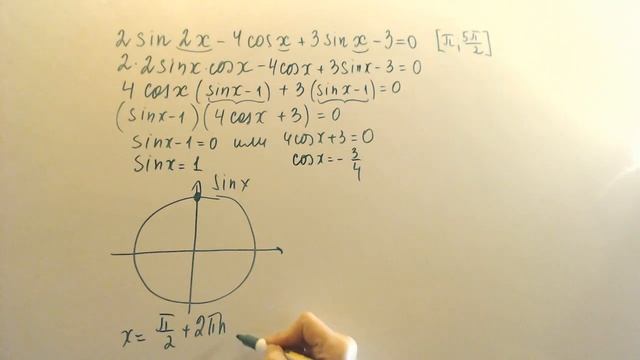 2 sin 2x - 4 cos x + 3 sin x - 3 = 0 [π, 5π/2]
2·2 sin x · cos x - 4 cos x + 3 sin x - 3 = 0
4 cos x (sin x - 1) + 3 (sin x - 1) = 0
(sin x - 1)(4 cos x + 3) = 0
sin x - 1 = 0 или 4 cos x + 3 = 0
sin x = 1 cos x = - 3/4
sin x
x = π/2 + 2πn